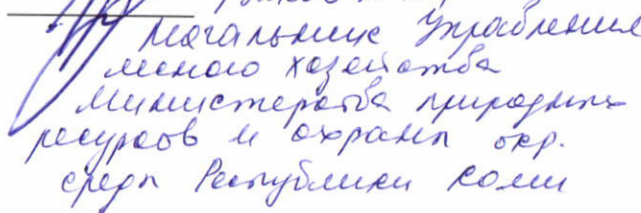 Начальник Управления
лесного хозяйства
Министерства природных
ресурсов и охраны окр.
среды Республики Коми